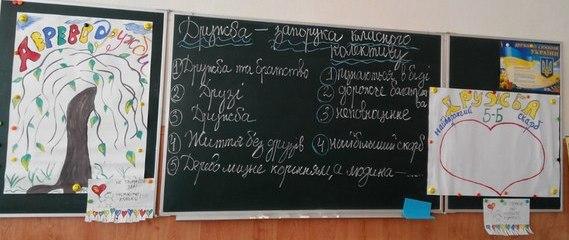 Дерево дружби
Дружба – запорука класного
колективу
① Дружба та братство
② Друзі
③ Дружба
④ Життя без друзів
⑤ Дерево міцне корінням, а людина – ....
① пізнаються в біді
② дорожче багатства
③ неповноцінне
④ найбільший скарб
ДЕРЖАВНІ СИМВОЛИ
УКРАЇНИ
ДРУЖБА
найдорожчий 5-Б скарб